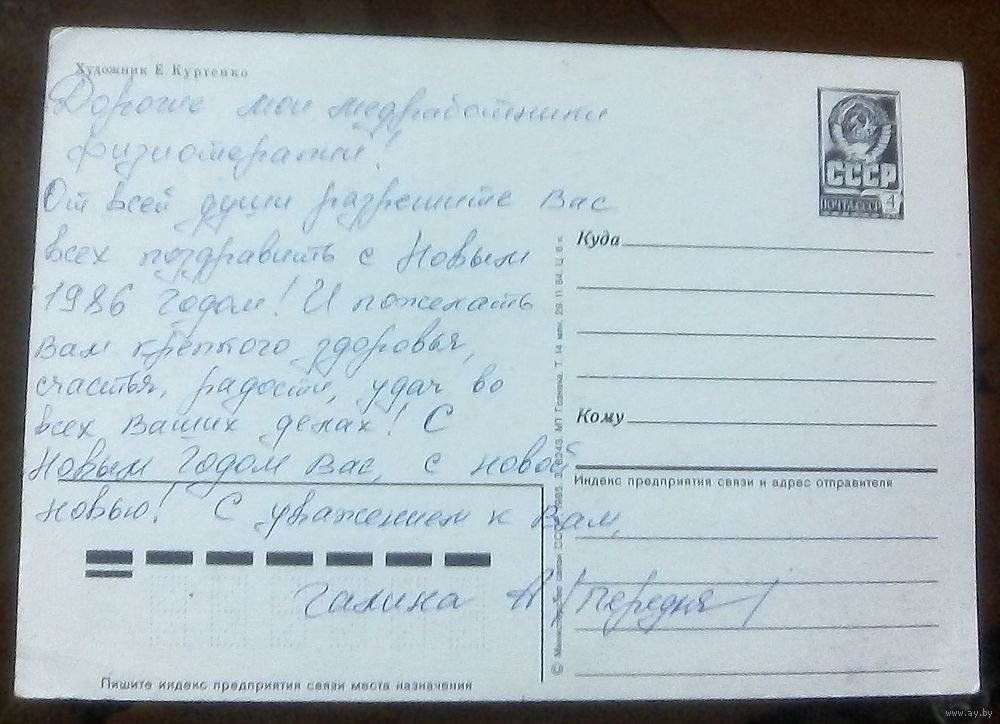 Художник Е Куртенко
Дорогие мои медработники
физиотерапии!
От всей души разрешите Вас
всех поздравить с Новым
1986 годом! И пожелать
вам крепкого здоровья,
счастья, радости, удач во
всех ваших делах! С
Новым годом вас, с новой
новью! С уважением к Вам,
Галина А /передня/
Пишите индекс предприятия связи места назначения
СССР
ПОЧТА СССР 4
Куда
Кому
Индекс предприятия связи и адрес отправителя
© Министерство связи СССР, 1985. МП Гознака. 29.11.84. Ц 6 к.
www.ay.by